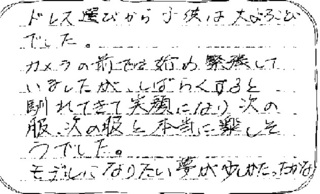 ドレス選びから子供は大よろこび
でした。
カメラの前では始め緊張して
いましたが、しばらくすると
馴れてきて笑顔になり次の
服、次の服と本当に楽しそ
うでした。
モデルになりたい夢が